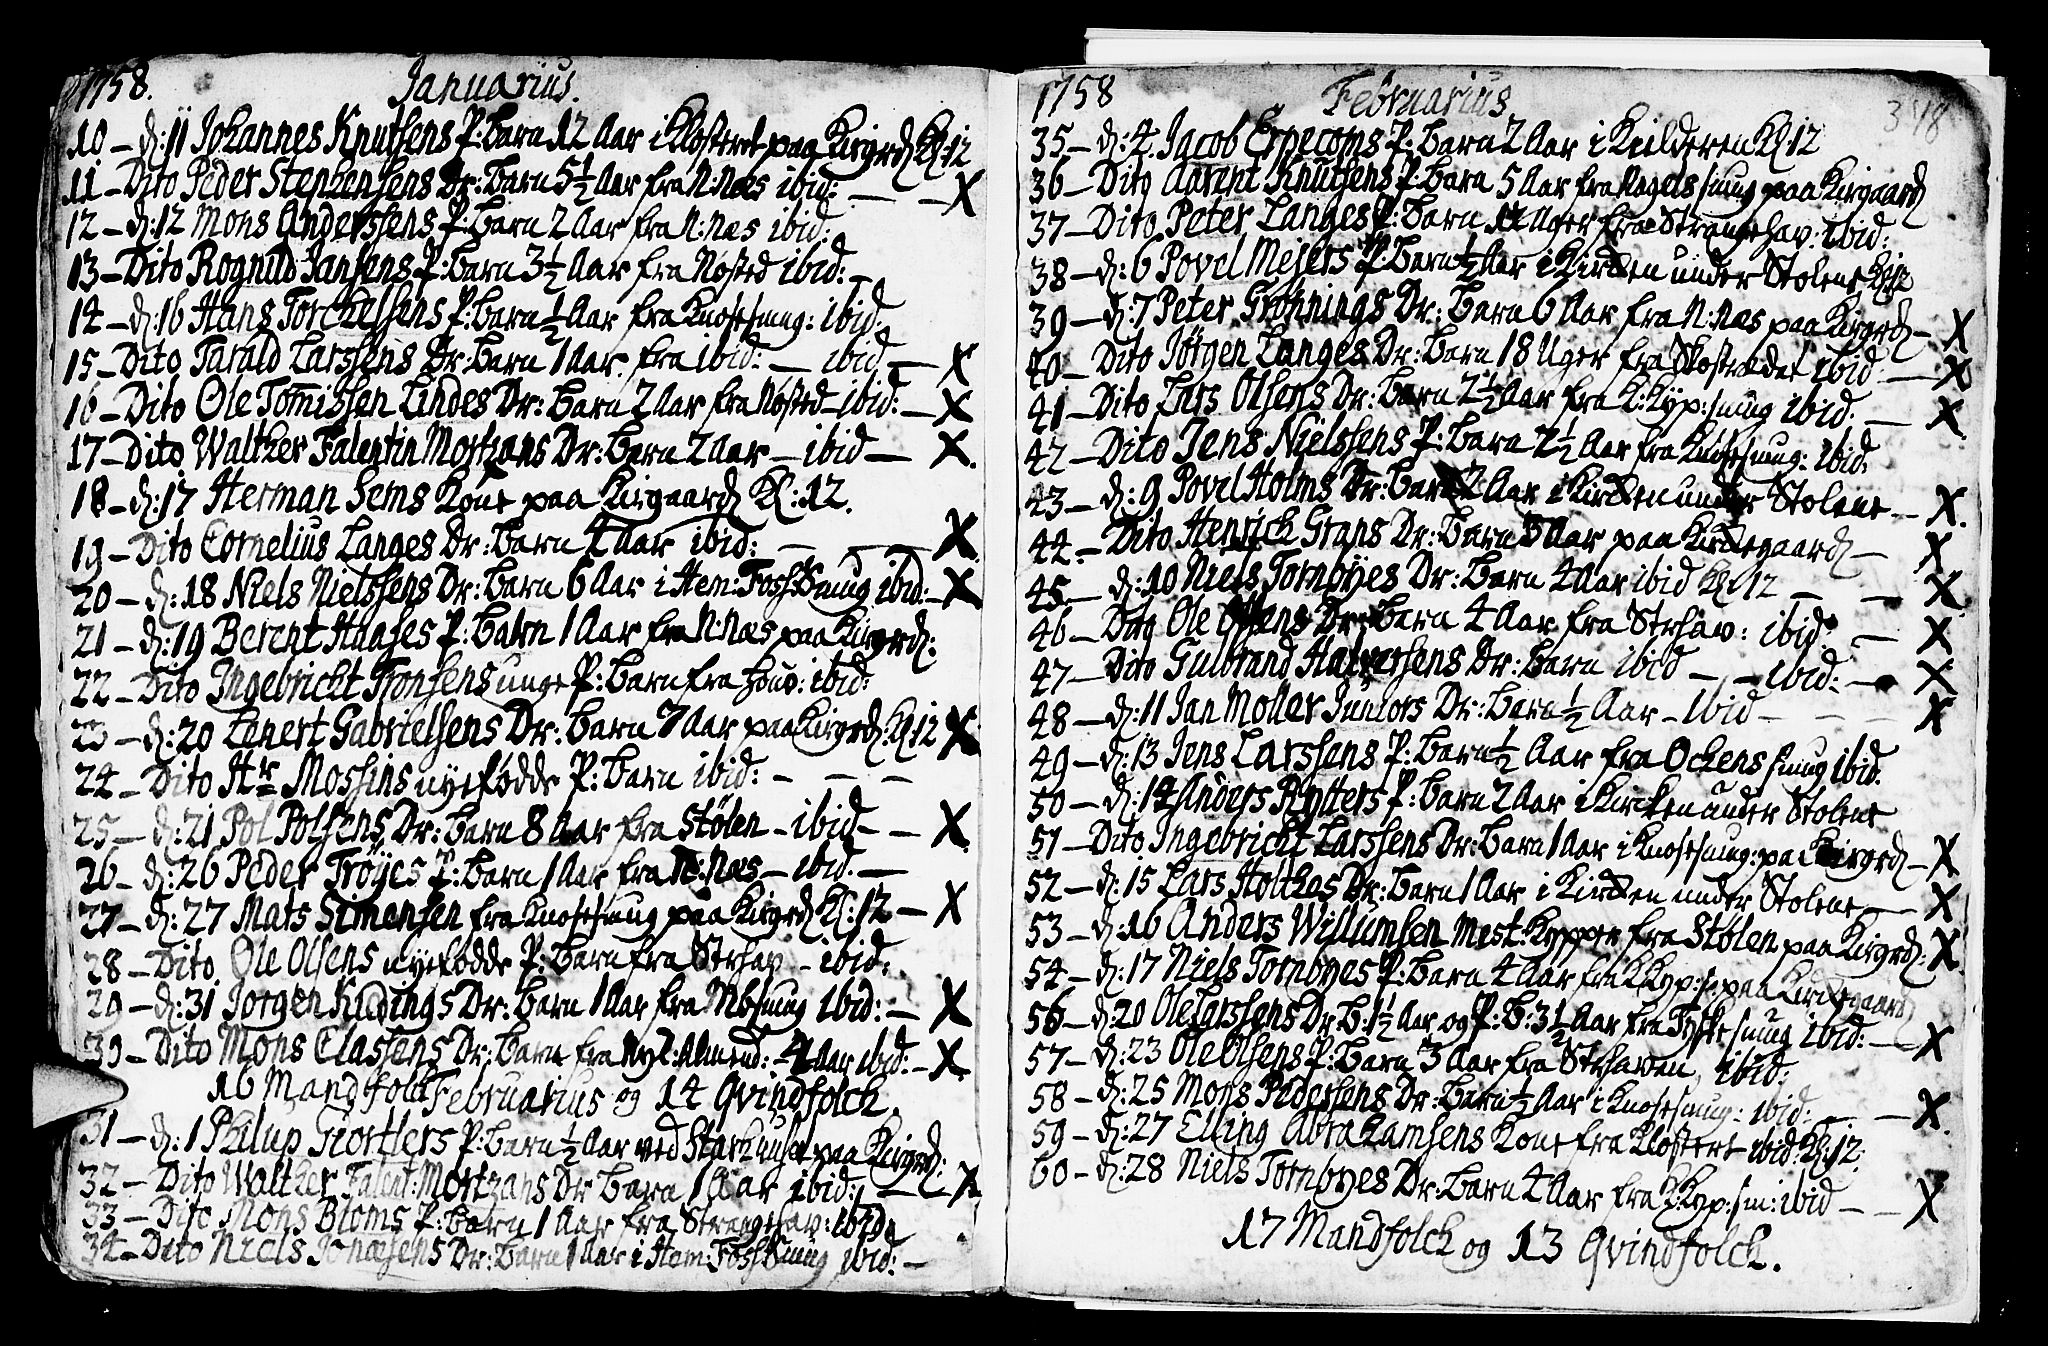 1758. Januarius.
10 – d: 11 Johannes Knutsens P: barn 12 Aar i Klosteret paa Kirgrd Kl: 12
11 – Dito Peder Stephensens Dr: barn 5½ Aar fra N: Næs ibid: – – X
12 – d: 12 Mons Anderssens P: barn 2 Aar fra N: næs ibid:
13 – Dito Rognild Jansens P: barn 3½ Aar fra Nøsted ibid: –
14 – d: 16 Hans Torckelsens P: barn ½ Aar fra Knosesmug: ibid:
15 – Dito Tarald Larssens Dr: barn 1 Aar fra ibid: – ibid – X
16 – Dito Ole Tomissen Lindes Dr: barn 2 Aar fra Nøsted – ibid: – X
17 – Dito Walther Falentin Mortzans Dr: barn 2 Aar – ibid – X.
18 – d: 17 Herman Sems Kone paa Kirgaard Kl: 12.
19 – Dito Cornelius Langes Dr: barn 4 Aar ibid: – – X
20 – d: 18 Niels Nielssens Dr: barn 6 Aar i Hem: Foss Smug ibid: – X
21 – d: 19 Berent Haases P: barn 1 Aar fra N: Næs paa Kirgrd:
22 – Dito Ingebricht Tronsens unge P: barn fra ibid:
23 – d: 20 Lenert Gabrielsens Dr: barn 7 Aar paa Kirgrd: Kl 12 X
24 – Dito Hr Mossins nyefødde P: barn ibid: – – –
25 – d: 21 Pol Polsens Dr: barn 8 Aar fra Stølen – ibid – – X
26 – d: 26 Peder Trøyes P: barn 1 Aar fra N: Næs – ibid. –
27 – d: 27 Mats Simensen fra Knosesmug paa Kirgrd Kl: 12 – X
28 – Dito Ole Olsens nyefødde P: barn fra Strhav – ibid:
29 – d: 31 Jørgen Kidings Dr: barn 1 Aar fra smug ibid: – X
30 – Dito Mons Classens Dr: barn fra Nye: Almend: – 4 Aar ibid: – X
16 Mandfolck og 14 Qvindfolck.
Februarius
31 – d: 1 Philup Giortlers P: barn ½ Aar ved Starhuuset paa Kirgrd:
32 – Dito Walther Falent: Mortzans Dr barn 1 Aar ibid: – – X
33 – Dito Mons Bloms P: barn 1 Aar fra Strangehav: ibid
34 – Dito Niels Jonæsens Dr: barn 1 Aar i Hem: Foss Smug ibid: –
1758 Februarius. 348
35 – d: 4 Jacob Especoms P: barn 2 Aar i Kielderen Kl: 12
36 – Dito Aarent Knutsens P: barn 5 Aar fra Nagelssmug paa Kirgaard
37 – Dito Peter Langes P: barn 12 Uger fra Strangehav: ibid:
38 – d: 6 Povel Mejers P: barn ½ Aar i Kircken under Stolene Kl 12
39 – d: 7 Peter Grønnings Dr: barn 6 Aar fra N: næs paa Kirgrd – X
40 – Dito Jørgen Langes Dr: barn 18 Uger fra Skostrædet ibid: – X
41 – Dito Lars Olsens Dr: barn 2½ Aar fra K: Kyp: smug ibid: – X
42 – Dito Jens Nielssens P: barn 2½ Aar fra Knosesmug: ibid:
43 – d: 9 Povel Holms Dr: barn 2 Aar i Kircken under Stolene – X.
44 – Dito Henrich Grans Dr: barn 3 Aar paa Kirckegaard – X
45 – d: 10 Niels Tornøyes Dr: barn 4 Aar ibid Kl 12 – – X
46 – Dito Ole Dr: barn 4 Aar fra Strhav: ibid: – X
47 – Dito Gulbrand Halversens Dr: barn ibid – – ibid: – X
48 – d: 11 Jan Moller Juniors Dr: barn ½ Aar – ibid – – – X
49 – d: 13 Jens Larssens P: barn ½ Aar fra Ockens smug ibid.
50 – d: 14 Anders Rytters P: barn 2 Aar i Kircken under Stolene
51 – Dito Ingebricht Larssens Dr: barn 1 Aar i Knosesmug: paa Kirgrd – X
52 – d: 15 Lars Holthes Dr: barn 1 Aar i Kircken under Stolene – X
53 – d: 16 Anders Willumsen Mest: Kypper fra Stølen paa Kirgrd: X
54 – d: 17 Niels Tornøyes P: barn 4 Aar fra K Kyp: s: paa Kirckegaard
56 – d: 20 Ole Larssens Dr B: 1½ Aar og P: B: 3½ Aar fra Tyskesmug ibid: – X
57 – d: 23 Ole Olsens P: barn 3 Aar fra Strhaven ibid:
58 – d: 25 Mons Pederssens Dr: barn ½ Aar i Knosesmug: ibid: – – X.
59 – d: 27 Elling Abrahamsens Kone fra Klosteret ibid: Kl: 12.
60 – d: 28 Niels Tornøyes Dr: barn 4 Aar fra K: Kyp: sm: ibid – – X
17 Mandfolck og 13 Qvindfolck.